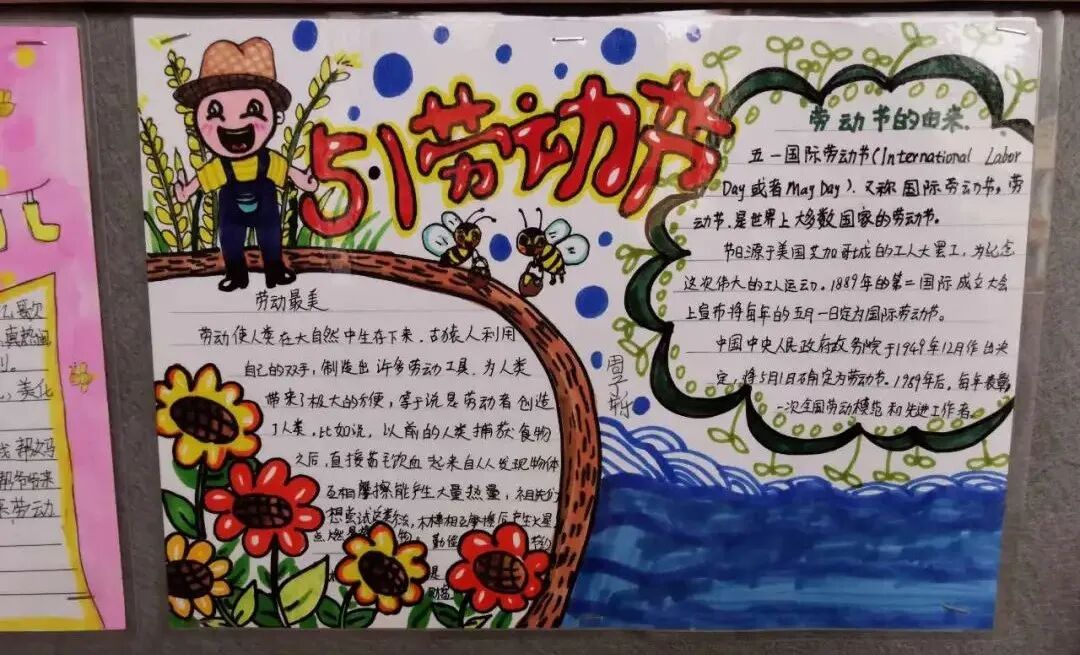 5·1劳动节
劳动最美
劳动使人类在大自然中生存下来,古猿人利用
自己的双手,制造出许多劳动工具.为人类
带来了极大的方便,等于说是劳动者创造
了人类.比如说,以前的人类捕获食物
之后,直接茹毛饮血 起来自从人发现物体
互相摩擦能产生大量热量,祖先们
想尝试这类方法,木棒相互摩擦后产生火星
点燃
劳动节的由来.
五一国际劳动节(International Labor
Day或者May Day).又称国际劳动节,劳
动节.是世界上大多数国家的劳动节。
节日源于美国芝加哥城的工人大罢工,为纪念
这次伟大的工人运动.1889年的第二国际成立大会
上宣布将每年的五月一日定为国际劳动节。
中国中央人民政府政务院于1949年12月作出决
定,将5月1日确定为劳动节。1989年后,每年表彰
一次全国劳动模范和先进工作者
么
真热闹
美化
帮妈妈
劳动